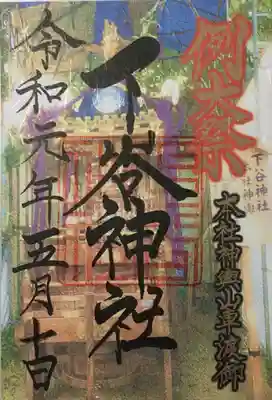 例大祭
本社神輿山車渡御
下谷神社
令和元年五月日
下谷神社